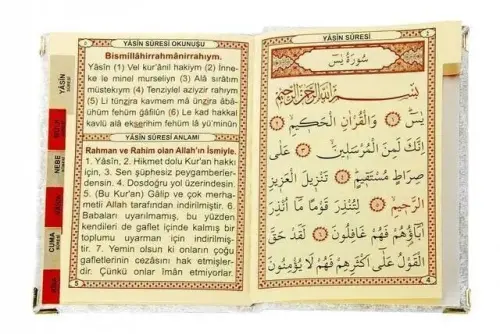 YÂSİN SÛRESİ OKUNUŞU
Bismillâhirrahmânirrahıym.
Yâsîn (1) Vel kur'ânil hakiym (2) İnne-
ke le minel murseliyn (3) Alâ sırâtım
müstekıym (4) Tenziylel aziyzir rahıym
(5) Li tünzira kavmem mâ ünzira âbâ-
ühüm fehüm gâfilün (6) Le kad hakkal
kavlü alâ ekserihim fehüm lâ yü'minün
YÂSİN SÛRESİ ANLAMI
Rahman ve Rahim olan Allah'ın İsmiyle.
1. Yâsîn, 2. Hikmet dolu Kur'an hakkı
için, 3. Sen şüphesiz peygamberler-
densin. 4. Dosdoğru yol üzerindesin.
5. (Bu Kur'an) Gâlip ve çok merha-
metli Allah tarafından indirilmiştir. 6.
Babaları uyarılmamış, bu yüzden
kendileri de gaflet içinde kalmış bir
toplumu uyarman için indirilmiş-
tir. 7. Yemin olsun ki onların çoğu
gafletlerinin cezasını hak etmişler-
dir. Çünkü onlar îmân etmiyorlar.
5
YÂSİN
NEBE
CUMA
YÂSİN SÛRESİ
سُورَةُ يٰسٓ
بِسْمِ اللّٰهِ الرَّحْمٰنِ الرَّحِيمِ
يٰسٓ ﴿١﴾ وَالْقُرْاٰنِ الْحَكِيمِ ﴿٢﴾
اِنَّكَ لَمِنَ الْمُرْسَلِينَ ﴿٣﴾ عَلٰى
صِرَاطٍ مُسْتَقِيمٍ ﴿٤﴾ تَنْزِيلَ الْعَزِيزِ
الرَّحِيمِ ﴿٥﴾ لِتُنْذِرَ قَوْمًا مَٓا اُنْذِرَ
اٰبَٓاؤُهُمْ فَهُمْ غَافِلُونَ ﴿٦﴾ لَقَدْ حَقَّ
الْقَوْلُ عَلٰٓى اَكْثَرِهِمْ فَهُمْ لَا يُؤْمِنُونَ
4